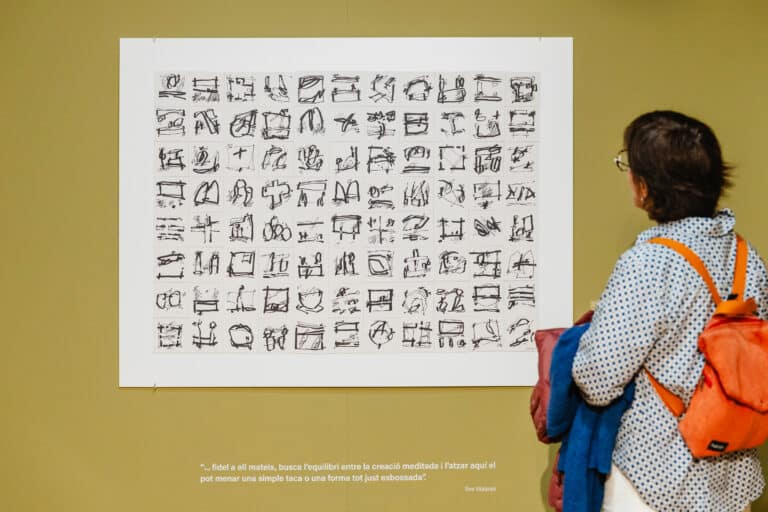 "... fidel a ell mateix, busca l'equilibri entre la creació meditada i l'atzar aquí el
pot menar una simple taca o una forma tot just esbossada".